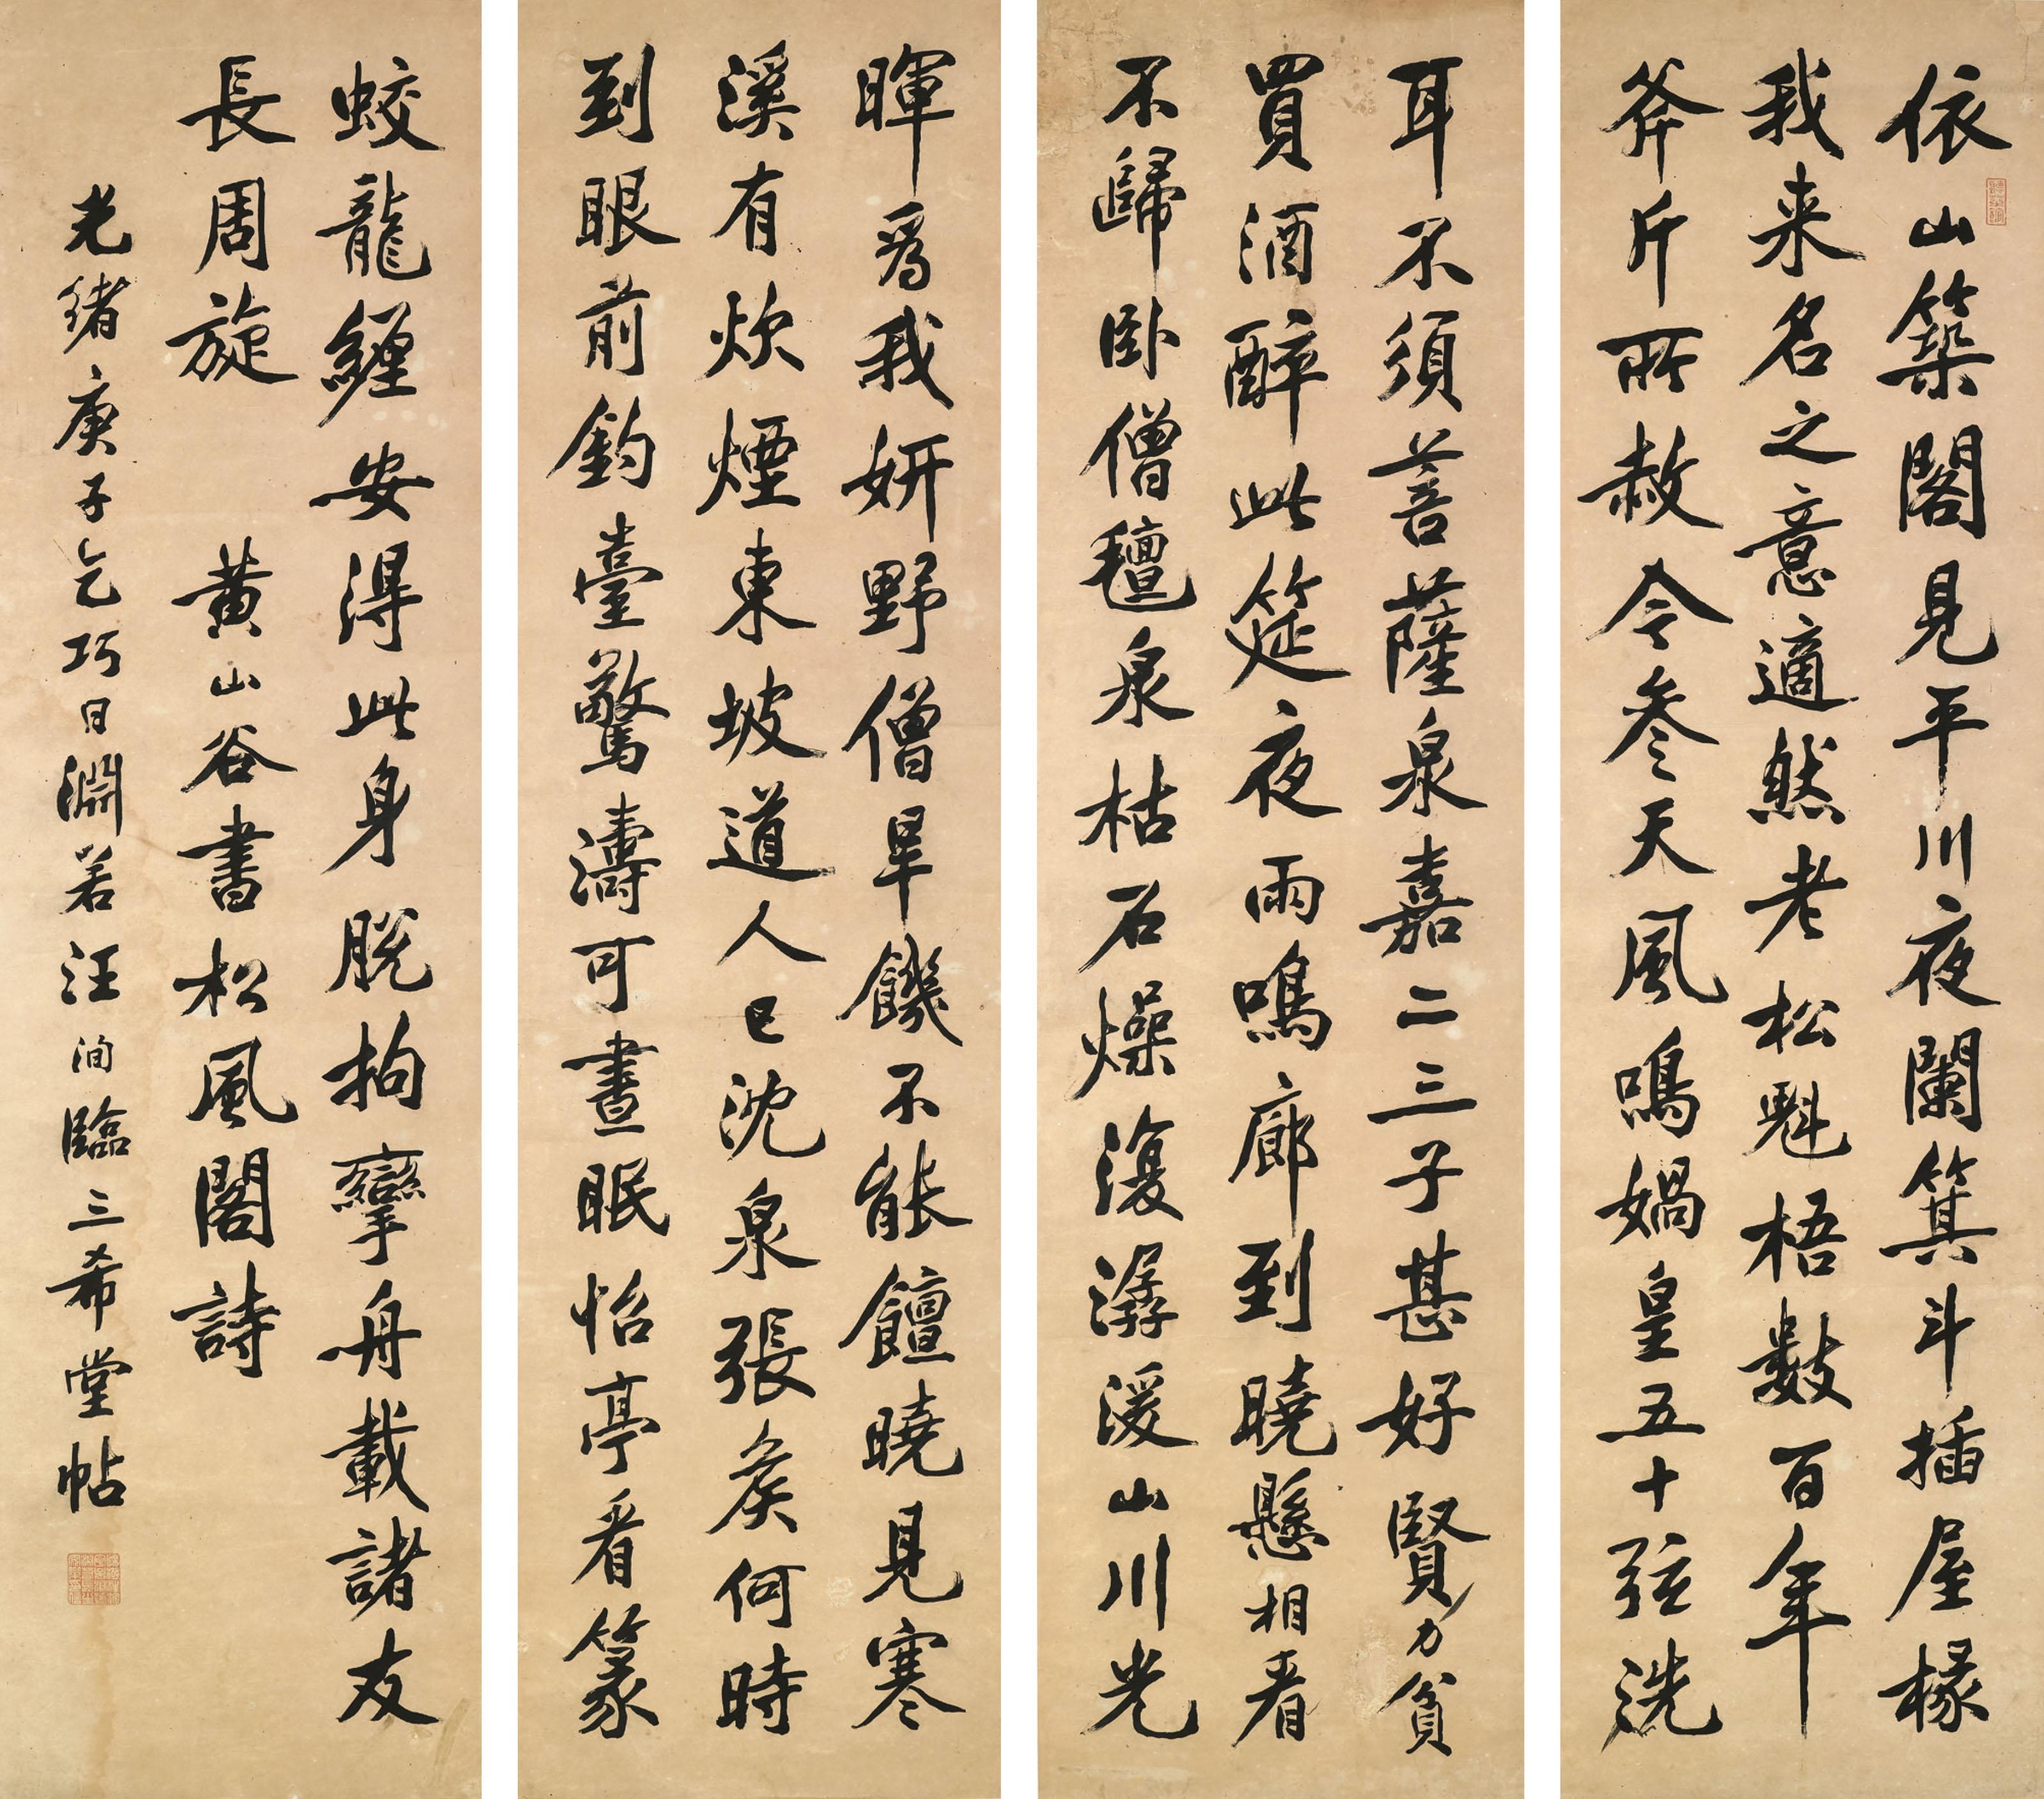 依山築閣見平川夜闌箕斗插屋椽
我来名之意適然老松魁梧數百年
斧斤所赦今參天風鳴媧皇五十弦洗
耳不須菩薩泉嘉二三子甚好賢力貧
買酒醉此筵夜雨鳴廊到曉懸相看
不歸卧僧氊泉枯石燥復潺湲山川光
暉為我妍野僧旱饑不能饘曉見寒
溪有炊煙東坡道人已沈泉張矦何時
到眼前釣臺驚濤可晝眠怡亭看篆
蛟龍纏安得此身脫拘攣舟載諸友
長周旋 黃山谷書松風閣詩
光緒庚子乞巧日淵若汪洵臨三希堂帖